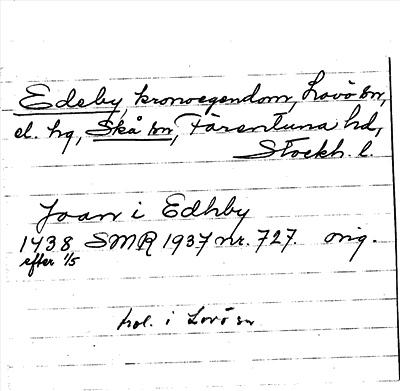 Edeby, kronoegendom, Lovö sn,
el. hg, Skå sn, Färentuna hd,
Stockh. l.
Joan i Edhby
1438 SMR 1937 nr. 727. orig.
efter 1/5
hol. i Lovö sn